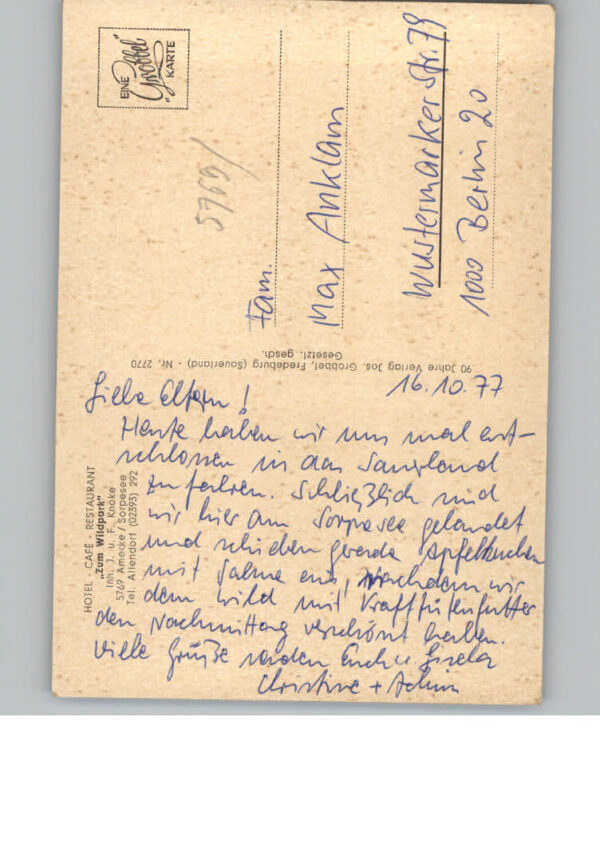 EINE
Grobbel
KARTE
5769/
Fam.
Max Anklam
Wustermarker Str. 79
1000 Berlin 20
90 Jahre Verlag Jos. Grobbel, Fredeburg (Sauerland) - Nr. 2770
Gesetzl. gesch.
HOTEL - CAFÉ - RESTAURANT
„Zum Wildpark"
Inh. J. u. F. Knoke
5769 Amecke / Sorpesee
Tel. Allendorf (02393) 292
16.10.77
Liebe Eltern!
Heute haben wir uns mal ent-
schlossen in das Sauerland
zu fahren. Schließlich sind
wir hier am Sorpesee gelandet
und schieben gerade Apfelkuchen
mit Sahne ein, nachdem wir
dem Wild mit Kraftfutter
den Nachmittag verschönt haben.
Viele Grüße senden Euch Gisela
Christine + Achim